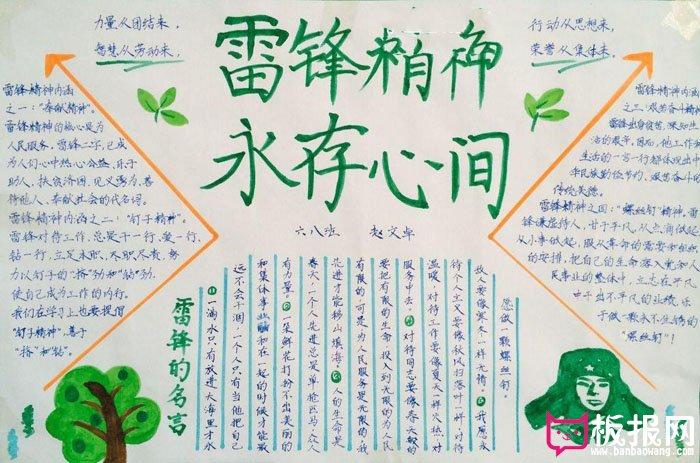 力量从团结来,
智慧从劳动来,
行动从思想来,
荣誉从集体来。
雷锋精神
永存心间
六八班 赵文卓
雷锋精神内涵
之一:"奉献精神"。
雷锋精神的核心是为
人民服务,雷锋二字,已成
为人们心中热心公益、乐于
助人、扶贫济困、见义勇为、善
待他人、奉献社会的代名词。
雷锋精神内涵之二:"钉子精神"。
雷锋对待工作,总是干一行、爱一行、
钻一行,立足本职、不职尽责,努
力以钉子的"挤"劲和"钻"劲,
使自己成为工作的内行。
我们在学习上也要提倡
"钉子精神",善于
"挤"和"钻"。
雷锋精神内涵
之三:艰苦奋斗精神
雷锋出身贫苦,深知生
活的艰辛,因而,他工作和
生活的一言一行都体现出中
华民族勤俭节约、艰苦奋斗的
传统美德。
雷锋精神之四:"螺丝钉"精神,雷
锋谦虚待人,甘于平凡,从点滴做起
从小事做起,服从革命的需要和组织
的安排,把自己的生命落入党和人
民事业的整体中,立志在平凡
中干出不平凡的业绩,乐
于做一颗永不生锈的
"螺丝钉"!
雷锋的名言
①一滴水只有放进大海里才永
远不会干涸,一个人只有当他把自己
和集体事业融和在一起的时候才能最
有力量。②一朵鲜花打扮不出美丽的
春天,一个人先进总是单枪匹马,众人
先进才能移山填海。③人的生命是
有限的,可是,为人民服务是无限的,我
要把有限的生命,投入到无限的为人民
服务中去。④对待同志要像春天般的
温暖,对待工作要像夏天一样火热,对
待个人主义要像秋风扫落叶一样,对待
敌人要像寒冬一样无情。⑤我愿永
远做一颗螺丝钉。
板报网
www.banbaowang.com